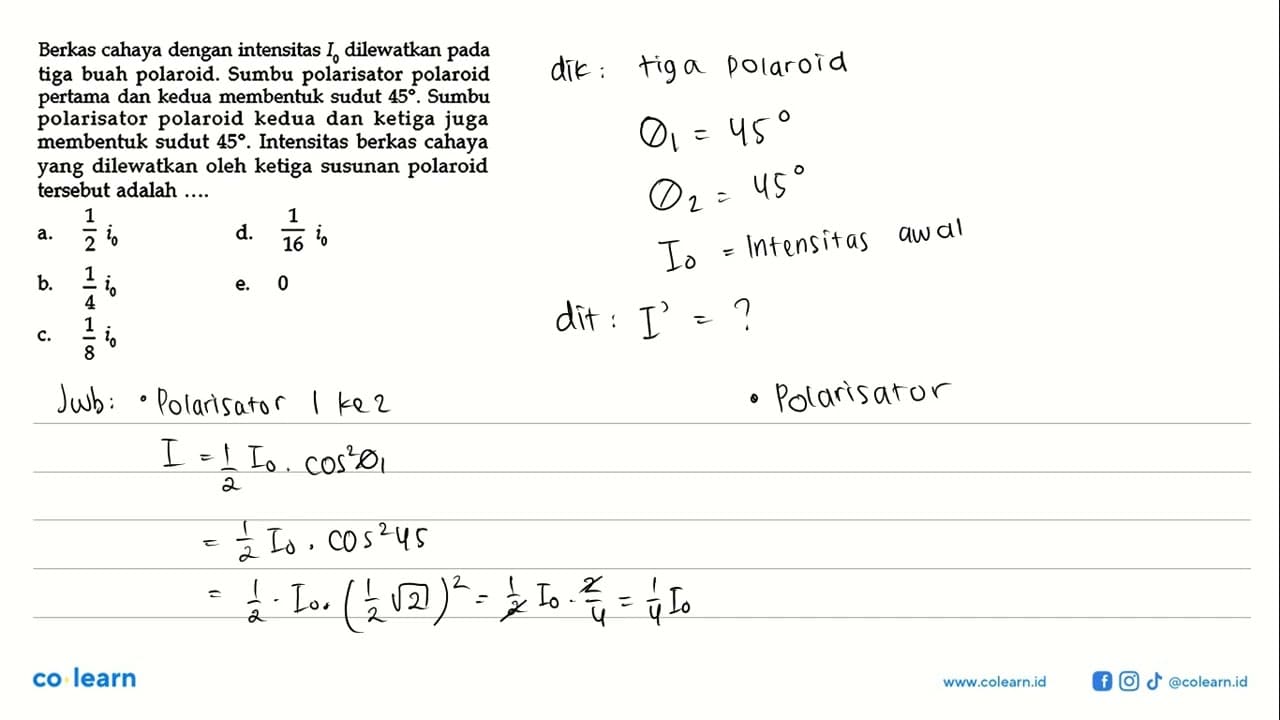 Berkas cahaya dengan intensitas I₀ dilewatkan pada
tiga buah polaroid. Sumbu polarisator polaroid
pertama dan kedua membentuk sudut 45°. Sumbu
polarisator polaroid kedua dan ketiga juga
membentuk sudut 45°. Intensitas berkas cahaya
yang dilewatkan oleh ketiga susunan polaroid
tersebut adalah ....
a. 1/2 i₀
b. 1/4 i₀
c. 1/8 i₀
d. 1/16 i₀
e. 0
dik: tiga polaroid
Ø₁ = 45°
Ø₂ = 45°
I₀ = Intensitas awal
dit: I' = ?
Jwb: • Polarisator 1 ke 2
I = 1/2 I₀ . cos²Ø₁
= 1/2 I₀ . cos²45
= 1/2 . I₀ . (1/2 √2)² = 1/2 I₀ . 2/4 = 1/4 I₀
• Polarisator
co learn
www.colearn.id
@colearn.id